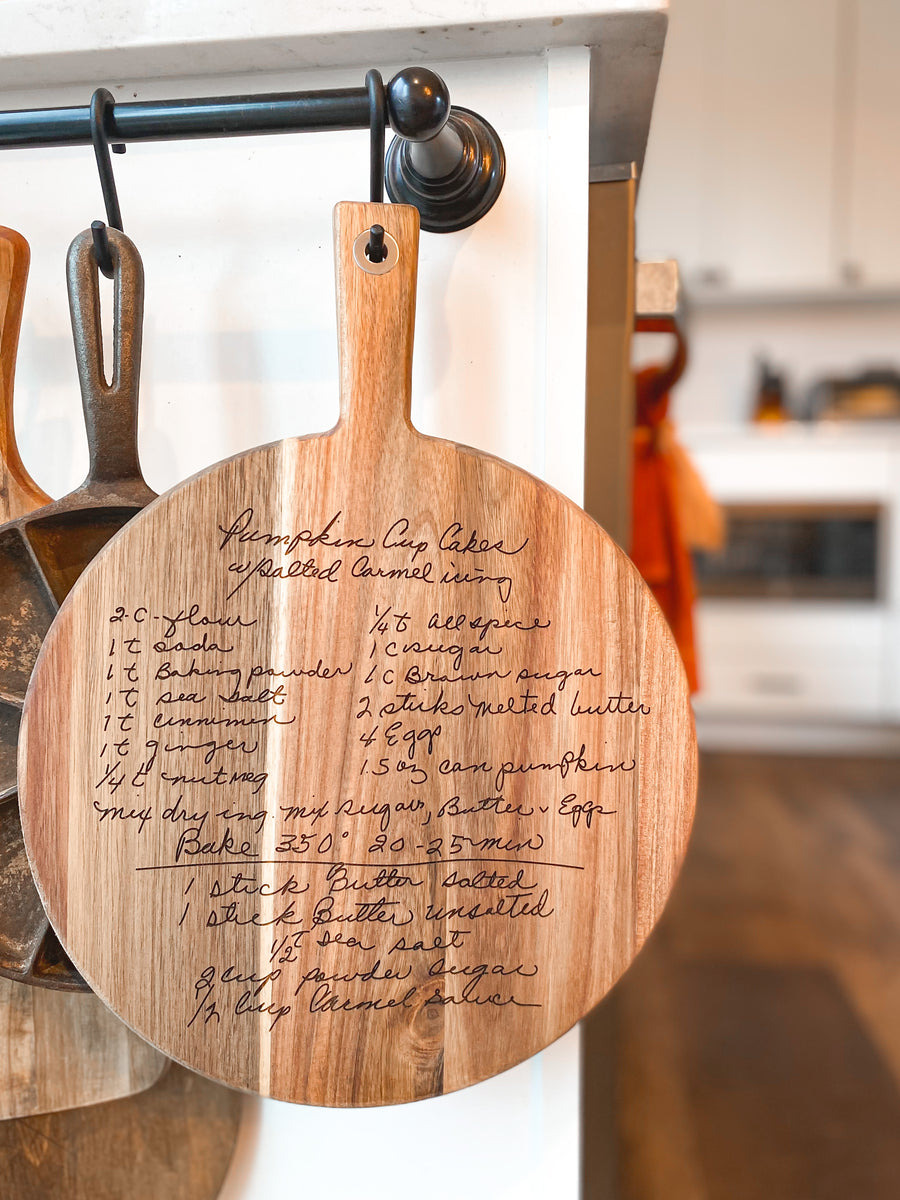 Pumpkin Cup Cakes
w/Salted Carmel icing
2 C - flour
1 t soda
1 t Baking powder
1 t sea salt
1 t cinnimin
1 t ginger
1/4 t nutmeg
1/4 t allspice
1 C sugar
1 C Brown sugar
2 sticks melted butter
4 Eggs
1.5 oz can pumpkin
mix dry ing. mix sugars, Butter & Eggs
Bake 350° 20-25 min
1 stick Butter salted
1 stick Butter unsalted
1/2 t sea salt
2 cup powder sugar
1/2 Cup Carmel Sauce